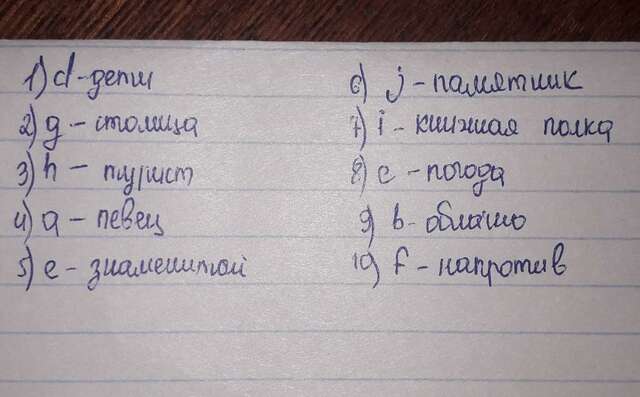 1) d - дети
2) g - столица
3) h - турист
4) a - певец
5) e - знаменитой
6) j - памятник
7) i - книжная полка
8) c - погода
9) b - облачно
10) f - напротив